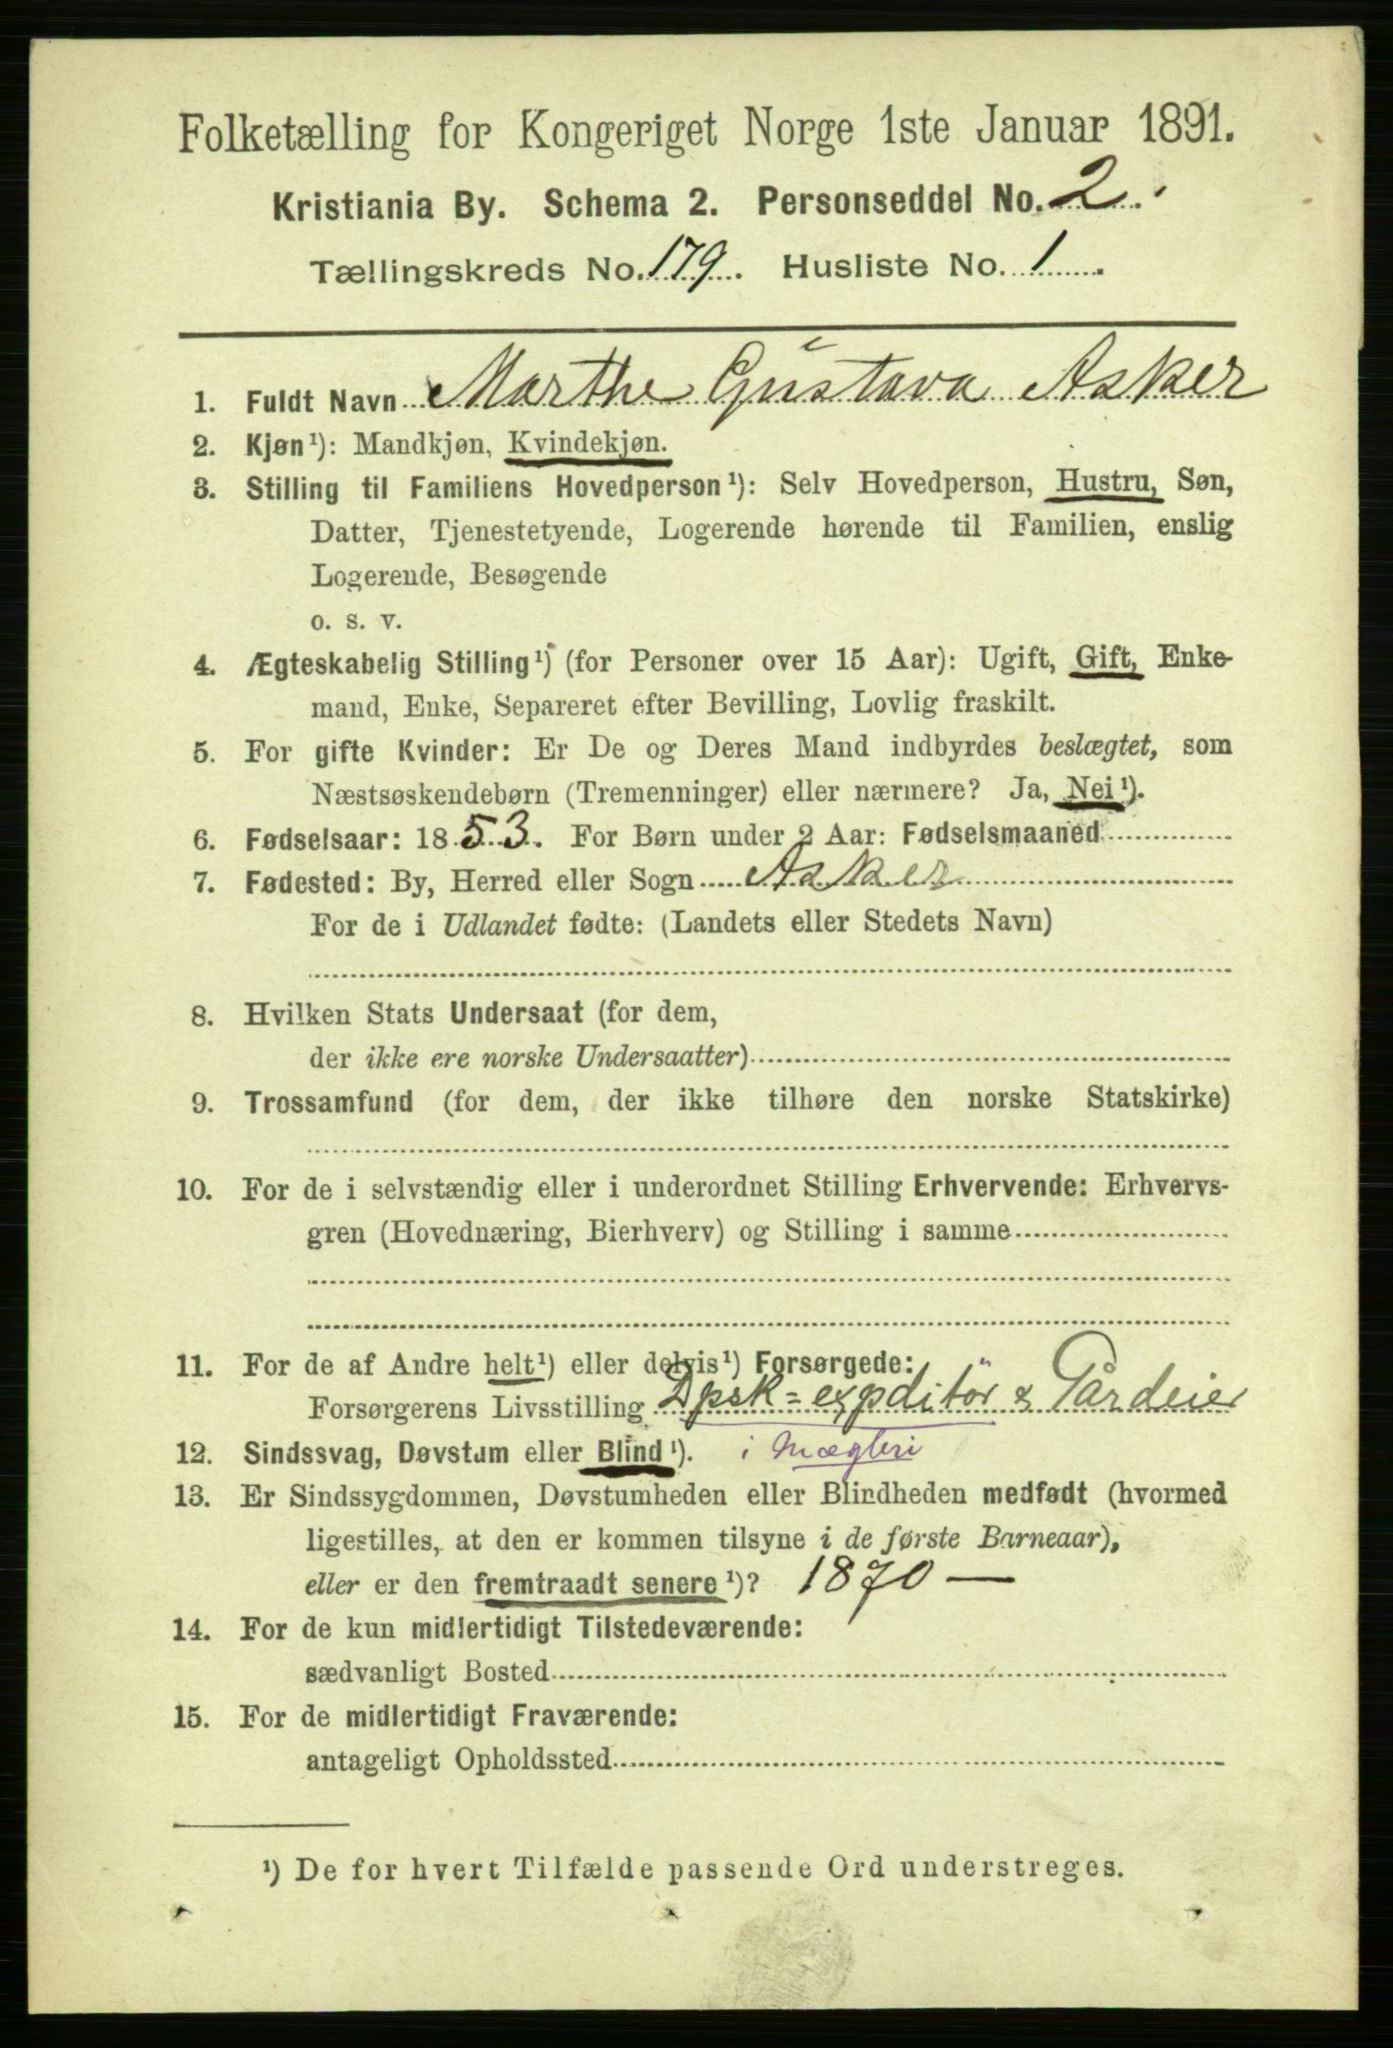 Folketælling for Kongeriget Norge 1ste Januar 1891.
Kristiania By. Schema 2. Personseddel No. 2.
Tællingskreds No. 179. Husliste No. 1.
1. Fuldt Navn Marthe Gustava Asker
2. Kjøn¹): Mandkjøn, Kvindekjøn.
3. Stilling til Familiens Hovedperson¹): Selv Hovedperson, Hustru, Søn,
Datter, Tjenestetyende, Logerende hørende til Familien, enslig
Logerende, Besøgende
o. s. v.
4. Ægteskabelig Stilling¹) (for Personer over 15 Aar): Ugift, Gift, Enke-
mand, Enke, Separeret efter Bevilling, Lovlig fraskilt.
5. For gifte Kvinder: Er De og Deres Mand indbyrdes beslægtet, som
Næstsøskendebørn (Tremenninger) eller nærmere? Ja, Nei¹).
6. Fødselsaar: 1853. For Børn under 2 Aar: Fødselsmaaned
7. Fødested: By, Herred eller Sogn Asker
For de i Udlandet fødte: (Landets eller Stedets Navn)
8. Hvilken Stats Undersaat (for dem,
der ikke ere norske Undersaatter)
9. Trossamfund (for dem, der ikke tilhøre den norske Statskirke)
10. For de i selvstændig eller i underordnet Stilling Erhvervende: Erhvervs-
gren (Hovednæring, Bierhverv) og Stilling i samme
11. For de af Andre helt¹) eller delvis¹) Forsørgede:
Forsørgerens Livsstilling Dpsk=expditör & Pårdeier
12. Sindssvag, Døvstum eller Blind¹). i Mægleri
13. Er Sindssygdommen, Døvstumheden eller Blindheden medfødt (hvormed
ligestilles, at den er kommen tilsyne i de første Barneaar),
eller er den fremtraadt senere¹)? 1870 —
14. For de kun midlertidigt Tilstedeværende:
sædvanligt Bosted
15. For de midlertidigt Fraværende:
antageligt Opholdssted
¹) De for hvert Tilfælde passende Ord understreges.